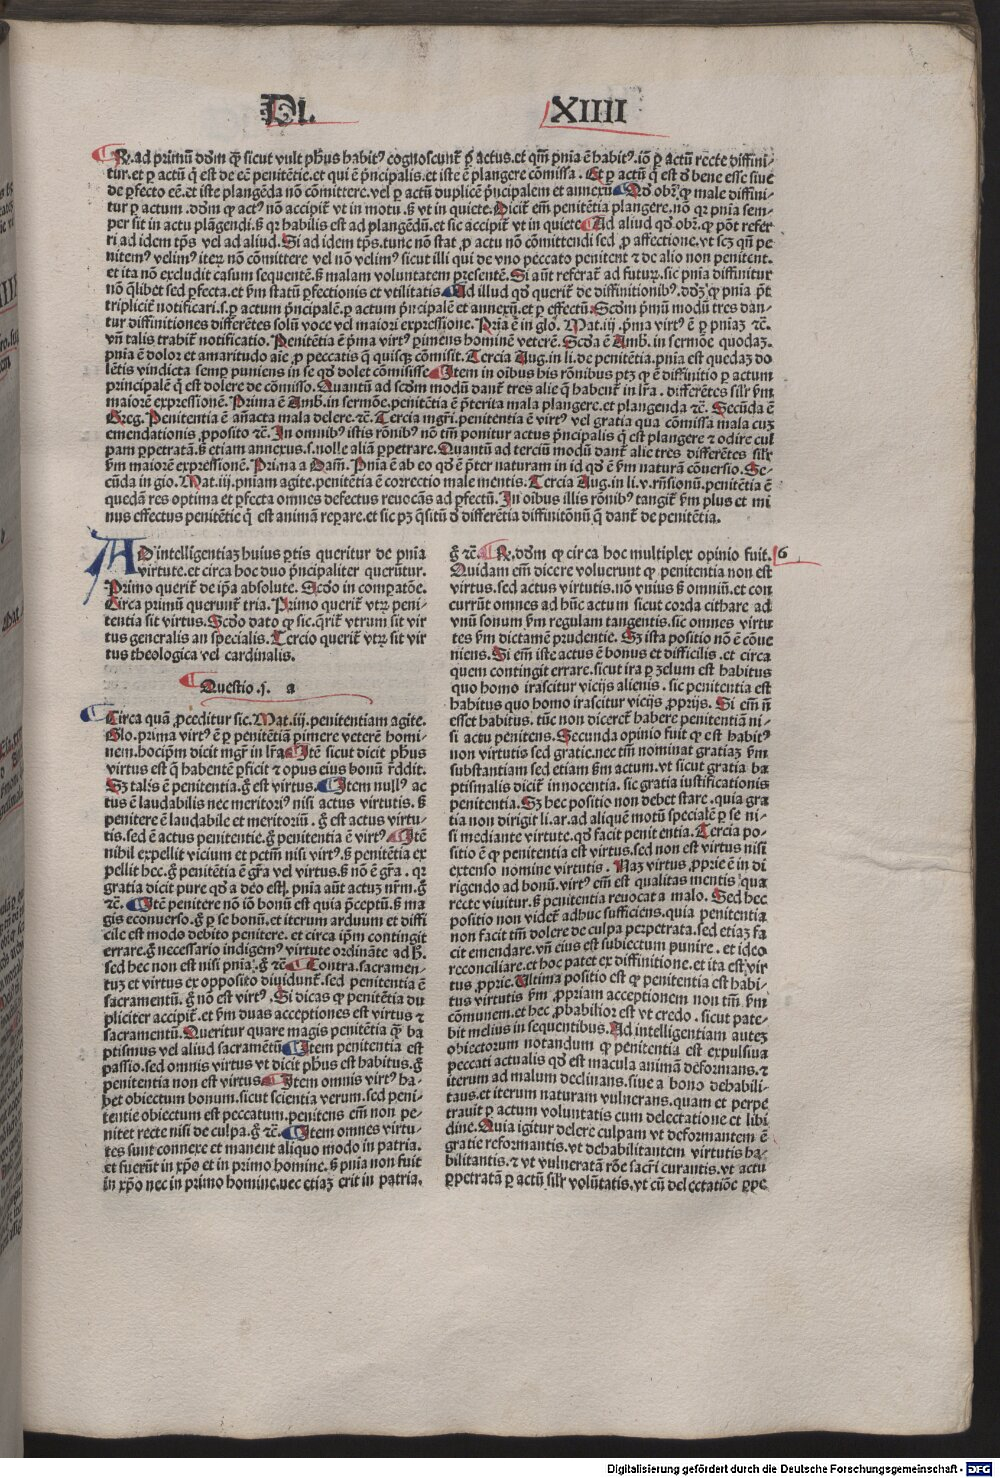 Di. XIIII
R. ad primũ dõm ꝙ sicut vult phũs habitꝰ cognoscunt̃ ꝑ actus. et qm̃ pnĩa ẽ habitꝰ. iõ ꝑ actũ recte diffini⸗
tur. et ꝑ actũ q̃ est de eẽ penitẽtie. et qui ẽ pñcipalis. et iste ẽ plangere cõmissa. Et ꝑ actũ q̃ est d̃ bene esse siue
de ꝑfecto eẽ. et iste plangẽda nõ cõmittere. vel ꝑ actũ duplicẽ pñcipalem et annexũ Qd̃ obr̃. ꝙ male diffini⸗
tur ꝑ actum. dõm ꝙ actꝰ nõ accipit̃ vt in motu. s̃ vt in quiete. Dicit̃ em̃ penitẽtia plangere. nõ qr pnĩa sem⸗
per sit in actu plãgendi. s̃ qr habilis est ad plangẽdũ. et sic accipit̃ vt in quiete Ad aliud qd̃ obr̃. ꝙ põt refer
ri ad idem tp̃s vel ad aliud. Si ad idem tp̃s. tunc nõ stat ꝓ actu nõ cõmittendi sed ꝓ affectione. vt scꝫ qñ pe
nitemꝰ velimꝰ iterꝫ nõ cõmittere vel nõ velimꝰ sicut illi qui de vno peccato penitent ⁊ de alio non penitent.
et ita nõ excludit casum sequentẽ. s̃ malam voluntatem presentẽ. Si aũt referat̃ ad futurꝫ. sic pnĩa diffinitur
nõ q̃libet sed ꝑfecta. et ẽm statũ ꝑfectionis et vtilitatis. Ad illud qd̃ querit̃ de diffinitionibꝰ. dõꝫ ꝙ pnĩa põt
triplicit̃ notificari. s. ꝑ actum pñcipalẽ. ꝑ actum pñcipalẽ et annexũ. et ꝑ effectũ. Scdõm pmũ modũ tres dan⸗
tur diffinitiones differẽtes solũ voce vel maiori expressione. Pria ẽ in glo. Mat. iij. pma virtꝰ ẽ ꝑ pniaꝫ ⁊c.
vñ talis trahit̃ notificatio. Penitẽtia ẽ pma virtꝰ pimens hominẽ veterẽ. Scda ẽ Amb. in sermõe quodaꝫ.
pnĩa ẽ dolor et amaritudo aĩe ꝓ peccatis q̃ quisqꝫ cõmisit. Tercia Aug. in li. de penitẽtia. pnĩa est quedaꝫ do
lẽtis vindicta semꝑ puniens in se qd̃ dolet cõmisisse Item in oĩbus his rõnibus ptꝫ ꝙ ẽ diffinitio ꝑ actum
principalẽ q̃ est dolere de cõmisso. Quantũ ad scdõm modũ dant̃ tres alie q̃ habent̃ in lr̃a. differẽtes sil̃r ẽm
maiorẽ expressionẽ. Prima ẽ Amb. in sermõe. penitẽtia ẽ pterita mala plangere. et plangenda ⁊c. Secũda ẽ
Greg. Penitentia ẽ añacta mala delere. ⁊c. Tercia mgr̃i. penitentia ẽ virtꝰ vel gratia qua cõmissa mala cuꝫ
emendationis ꝓposito ⁊c. In omnibꝰ istis rõnibꝰ nõ tm̃ ponitur actus pñcipalis q̃ est plangere ⁊ odire cul
pam ꝑpetratã. s̃ etiam annexus. s. nolle aliã ꝑpetrare. Quantũ ad terciũ modũ dant̃ alie tres differẽtes sil̃r
ẽm maiorẽ expressionẽ. Prima a Dam̃. Pnĩa ẽ ab eo qd̃ ẽ pter naturam in id qd̃ ẽ ẽm naturã cõuersio. Se⸗
cũda in glo. Mat. iij. pniam agite. penitẽtia ẽ correctio male mentis. Tercia Aug. in li. v. rñsionũ. penitẽtia ẽ
quedã res optima et ꝑfecta omnes defectus reuocãs ad ꝑfectũ. In oĩbus illis rõnibꝰ tangit̃ ẽm plus et mi
nus effectus penitẽtie q̃ est animã reparare. et sic pꝫ q̃situm d̃ differẽtia diffinitõnũ q̃ dant̃ de penitẽtia.
AD intelligentiaꝫ huius ptis queritur de pnĩa
virtute. et circa hoc duo pñcipaliter querũtur.
Primo querit̃ de ip̃a absolute. Scdõ in comparatõe.
Circa primũ querunt̃ tria. Primo querit̃ vtrꝫ peni⸗
tentia sit virtus. Scdõ dato ꝙ sic. q̃rit̃ vtrum sit vir
tus generalis an specialis. Tercio querit̃ vtrꝫ sit vir
tus theologica vel cardinalis.
Questio .j. a
Circa quã ꝓceditur sic. Mat. iij. penitentiam agite.
Glo. prima virtꝰ ẽ ꝑ penitẽtiã pimere veterẽ homi⸗
nem. hoc ip̃m dicit mgr̃ in lr̃a Itẽ sicut dicit phũs
virtus est q̃ habentẽ ꝑficit ⁊ opus eius bonũ r̃ddit.
Sꝫ talis ẽ penitentia. g̃ est virtus. Item nullꝰ ac
tus ẽ laudabilis nec meritoriꝰ nisi actus virtutis. s̃
penitere ẽ laudabile et meritoriũ. g̃ est actus virtu⸗
tis. sed ẽ actus penitentie. g̃ penitentia ẽ virtꝰ Itẽ
nihil expellit vicium et pctm̃ nisi virtꝰ. s̃ penitẽtia ex
pellit hec. g̃ penitẽtia ẽ gr̃a vel virtus. s̃ nõ ẽ gr̃a. qr
gratia dicit pure qd̃ a deo est. pnĩa aũt actuꝫ nr̃m. g̃
⁊c. Itẽ penitere nõ iõ bonũ est quia pceptũ. s̃ ma
gis econuerso. g̃ ꝑ se bonũ. et iterum arduum et diffi
cile est modo debito penitere. et circa ip̃m contingit
errare. g̃ necessario indigemꝰ virtute ordinãte ad h̃.
sed hec non est nisi pnĩa. g̃ ⁊c Contra. sacramen⸗
tuꝫ et virtus ex opposito diuidunt̃. sed penitentia ẽ
sacramentũ. g̃ nõ est virtꝰ. Si dicas ꝙ penitẽtia du
pliciter accipit̃. et ẽm duas acceptiones est virtus ⁊
sacramentũ. Queritur quare magis penitẽtia q̃ ba
ptismus vel aliud sacramẽtũ Item penitentia est
passio. sed omnis virtus vt dicit phũs est habitus. g̃
penitentia non est virtus. Item omnis virtꝰ ha⸗
bet obiectum bonum. sicut scientia verum. sed peni⸗
tentie obiectum est peccatum. penitens em̃ non pe⸗
nitet recte nisi de culpa. g̃ ⁊c. Item omnes virtu⸗
tes sunt connexe et manent aliquo modo in patria.
et fuerũt in xp̃o et in primo homine. s̃ pnĩa non fuit
in xp̃o nec in primo homine. nec etiaꝫ erit in patria.
g̃ ⁊c. R. dõm ꝙ circa hoc multiplex opinio fuit. 6
Quidam em̃ dicere voluerunt ꝙ penitentia non est
virtus. sed actus virtutis. nõ vnius s̃ omniũ. et con
currũt omnes ad hũc actum sicut corda cithare ad
vnũ sonum ẽm regulam tangentis. sic omnes virtu
tes ẽm dictamẽ prudentie. Sꝫ ista positio nõ ẽ cõue
niens. Si em̃ iste actus ẽ bonus et difficilis. et circa
quem contingit errare. sicut ira ꝑ zelum est habitus
quo homo irascitur vicijs alienis. sic penitentia est
habitus quo homo irascitur vicijs ꝓprijs. Si em̃ ñ
esset habitus. tũc non diceret̃ habere penitentiã ni⸗
si actu penitens. Secunda opinio fuit ꝙ est habitꝰ
non virtutis sed gratie. nec tm̃ nominat gratiaꝫ ẽm
substantiam sed etiam ẽm actum. vt sicut gratia ba
ptismalis dicit̃ innocentia. sic gratia iustificationis
penitentia. Sꝫ hec positio non debet stare. quia gra
tia non dirigit li. ar. ad aliquẽ motũ specialẽ ꝑ se ni⸗
si mediante virtute. qd̃ facit penitentia. Tercia po⸗
sitio ẽ ꝙ penitentia est virtus. sed non est virtus nisi
extenso nomine virtutis. Naꝫ virtus ꝓprie ẽ in di
rigendo ad bonũ. virtꝰ em̃ est qualitas mentis qua
recte viuitur. s̃ penitentia reuocat a malo. Sed hec
positio non videt̃ adhuc sufficiens. quia penitentia
non facit tm̃ dolere de culpa perpetrata. sed etiaꝫ fa
cit emendare. vñ eius est subiectum punire. et ideo
reconciliare. et hoc patet ex diffinitione. et ita est vir
tus ꝓprie. Ultima positio est ꝙ penitentia est habi⸗
tus virtutis ẽm ꝓpriam acceptionem non tm̃ ẽm
cõmunem. et hec ꝓbabilior est vt credo. sicut pate⸗
bit melius in sequentibus. Ad intelligentiam auteꝫ
obiectorum notandum ꝙ penitentia est expulsiua
peccati actualis qd̃ est macula animã deformans. ⁊
iterum ad malum declinans. siue a bono dehabili⸗
taus. et iterum naturam vulnerans. quam et perpe
trauit ꝑ actum voluntatis cum delectatione et libi
dine. Quia igitur delere culpam vt deformantem ẽ
gratie reformantis. vt dehabilitantem virtutis ha⸗
bilitantis. ⁊ vt vulneratã rõe sacr̃i curantis. vt actu
ꝑpetratã ꝑ actũ sil̃r volũtatis. vt cũ delectatiõe ꝑpe
Digitalisierung gefördert durch die Deutsche Forschungsgemeinschaft - DFG